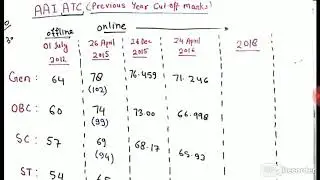 AAI ATC (Previous Year Cut off marks)
offline online
01 July 2012 26 April 2015 26 Dec 2015 24 April 2016 2018
Gen: 64 78 (102) 76.459 71.246
OBC: 60 74 (99) 73.00 66.998
SC: 57 69 (94) 68.17 65.93
ST: 54 65